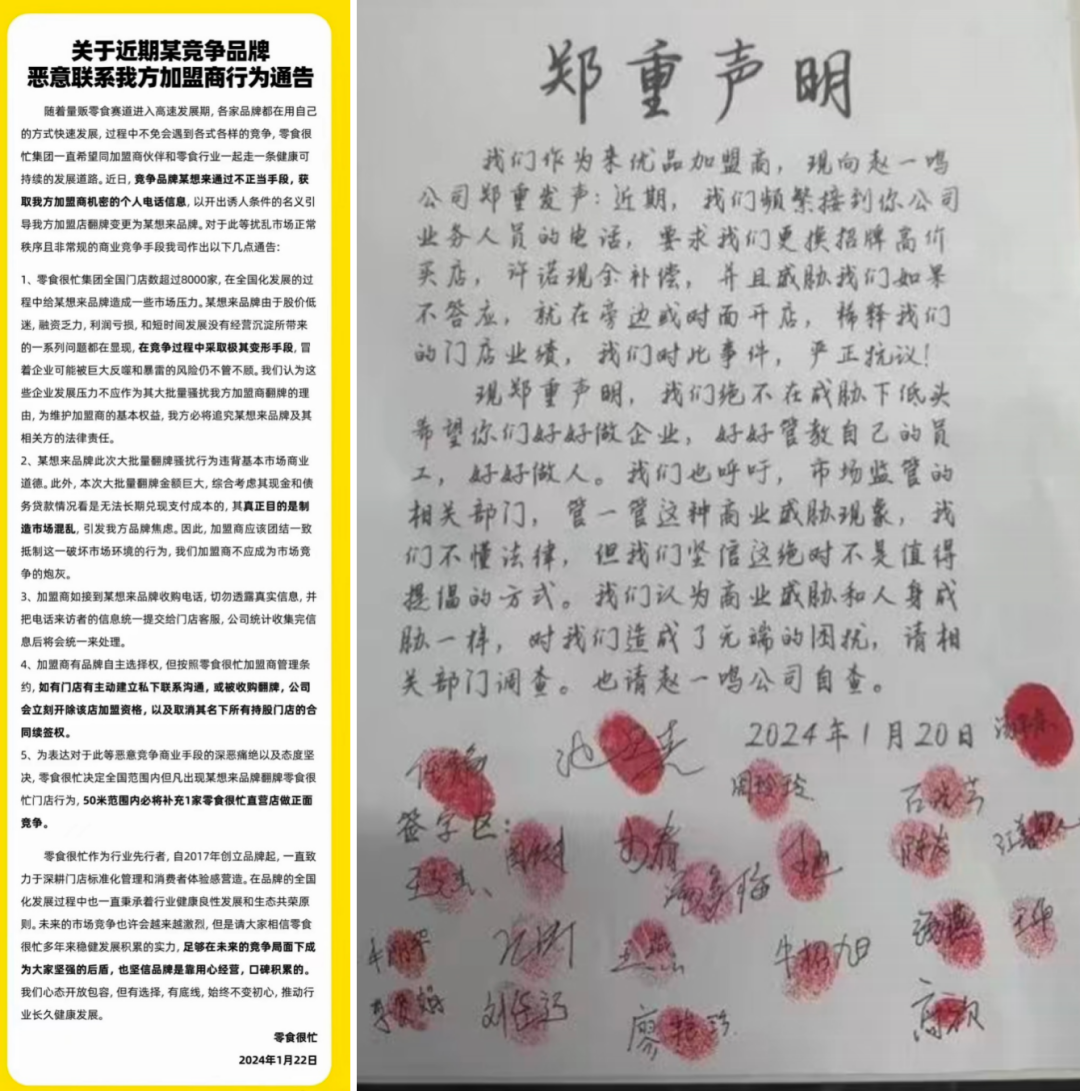 关于近期某竞争品牌
恶意联系我方加盟商行为通告
随着量贩零食赛道进入高速发展期，各家品牌都在用自己
的方式快速发展，过程中不免会遇到各式各样的竞争，零食很
忙集团一直希望同加盟商伙伴和零食行业一起走一条健康可
持续的发展道路。近日，竞争品牌某想来通过不正当手段，获
取我方加盟商机密的个人电话信息，以开出诱人条件的名义引
导我方加盟店翻牌变更为某想来品牌。对于此等扰乱市场正常
秩序且非常规的商业竞争手段我司作出以下几点通告：
1、零食很忙集团全国门店数超过8000家，在全国化发展的过
程中给某想来品牌造成一些市场压力。某想来品牌由于股价低
迷，融资乏力，利润亏损，和短时间发展没有经营沉淀所带来
的一系列问题都在显现，在竞争过程中采取极其变形手段，冒
着企业可能被巨大反噬和暴雷的风险仍不管不顾。我们认为这
些企业发展压力不应作为其大批量骚扰我方加盟商翻牌的理
由，为维护加盟商的基本权益，我方必将追究某想来品牌及其
相关方的法律责任。
2、某想来品牌此次大批量翻牌骚扰行为违背基本市场商业
道德。此外，本次大批量翻牌金额巨大，综合考虑其现金和债
务贷款情况看是无法长期兑现支付成本的，其真正目的是制
造市场混乱，引发我方品牌焦虑。因此，加盟商应该团结一致
抵制这一破坏市场环境的行为，我们加盟商不应成为市场竞
争的炮灰。
3、加盟商如接到某想来品牌收购电话，切勿透露真实信息，并
把电话来访者的信息统一提交给门店客服，公司统计收集完信
息后将会统一来处理。
4、加盟商有品牌自主选择权，但按照零食很忙加盟商管理条
约，如有门店有主动建立私下联系沟通，或被收购翻牌，公司
会立刻开除该店加盟资格，以及取消其名下所有持股门店的合
同续签权。
5、为表达对于此等恶意竞争商业手段的深恶痛绝以及态度坚
决，零食很忙决定全国范围内但凡出现某想来品牌翻牌零食很
忙门店行为，50米范围内必将补充1家零食很忙直营店做正面
竞争。
零食很忙作为行业先行者，自2017年创立品牌起，一直致
力于深耕门店标准化管理和消费者体验感营造。在品牌的全国
化发展过程中也一直秉承着行业健康良性发展和生态共荣原
则。未来的市场竞争也许会越来越激烈，但是请大家相信零食
很忙多年来稳健发展积累的实力，足够在未来的竞争局面下成
为大家坚强的后盾，也坚信品牌是靠用心经营，口碑积累的。
我们心态开放包容，但有选择，有底线，始终不变初心，推动行
业长久健康发展。
零食很忙
2024年1月22日
郑重声明
我们作为来优品加盟商，现向赵一鸣
公司郑重发声：近期，我们频繁接到你公司
业务人员的电话，要求我们更换招牌高价
买店，许诺现金补偿，并且威胁我们如果
不答应，就在旁边或对面开店，稀释我们
的门店业绩，我们对此事件，严正抗议！
现郑重声明，我们绝不在威胁下低头
希望你们好好做企业，好好管教自己的员
工，好好做人。我们也呼吁，市场监管的
相关部门，管一管这种商业威胁现象，我
们不懂法律，但我们坚信这绝对不是值得
提倡的方式。我们认为商业威胁和人身威
胁一样，对我们造成了无端的困扰，请相
关部门调查。也请赵一鸣公司自查。
2024年1月20日
周珍玲
签字区：